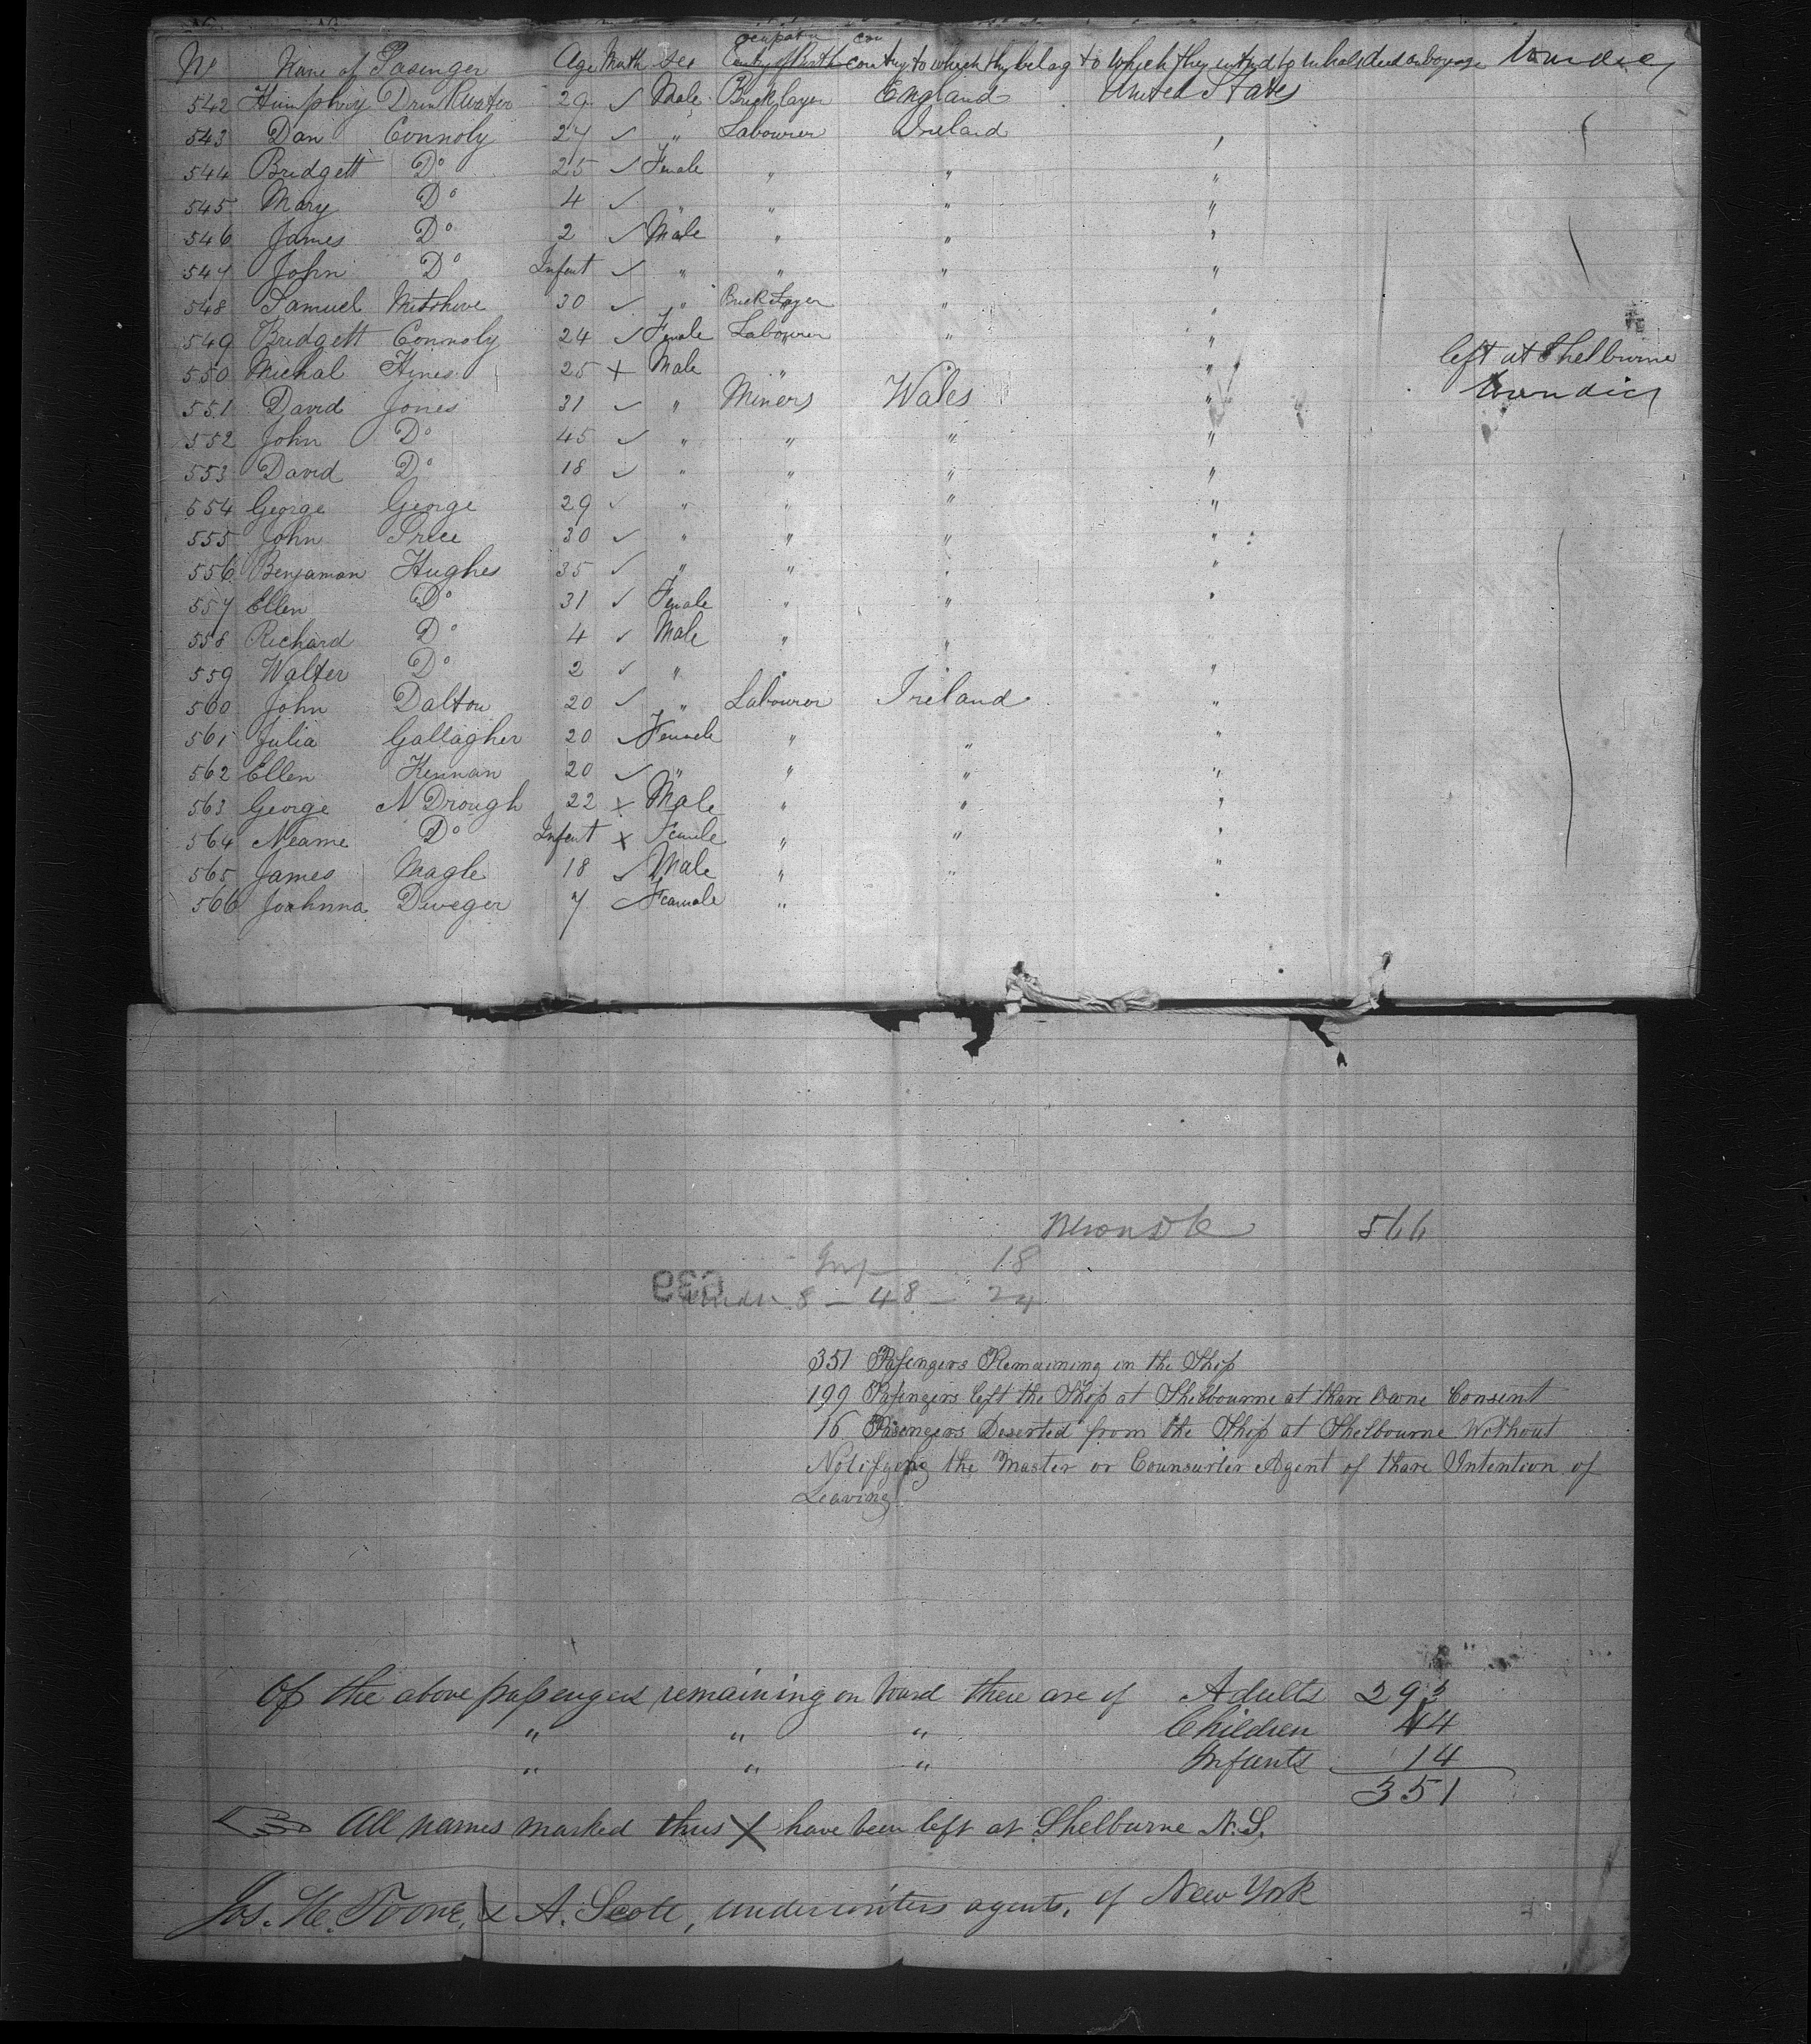 No Name of Pasinger Age Sex ocupation Country to which thy belong to which they intend to inhabit
542 Humphrey Drinkwater 29 ✓ Male Bricklayer England United States
543 Dan Connoly 27 ✓ " Labourer Ireland "
544 Bridgett Do 25 ✓ Female " " "
545 Mary Do 4 ✓ " " " "
546 James Do 2 ✓ Male " " "
547 John Do Infent ✓ " " " "
548 Samuel 30 ✓ " Brick Layer " "
549 Bridgett Connoly 24 ✓ Female Labourer " "
550 Michal Hines 25 X Male " " left at Shelburne
551 David Jones 31 ✓ " Miners Wales "
552 John Do 45 ✓ " " " "
553 David Do 18 ✓ " " " "
554 George George 29 ✓ " " " "
555 John Price 30 ✓ " " " "
556 Benjaman Hughes 35 ✓ " " " "
557 Ellen Do 31 ✓ Female " " "
558 Richard Do 4 ✓ Male " "
559 Walter Do 2 ✓ " " "
560 John Dalton 20 ✓ " Labourer Ireland "
561 Julia Gallagher 20 ✓ Female " " "
562 Ellen Kennan 20 ✓ " " " "
563 George N Drough 22 X Male " " "
564 Neame Do Infent X Female " " "
565 James Magle 18 ✓ Male " " "
566 Joahnna Deweger 7 ✓ Feamale " "
566
18
8 - 48 - 24
351 Pasengers Remaining in the Ship
199 Pasengers left the Ship at Shelbourne at thare Owne Consent
16 Pasengers Deserted from the Ship at Shelbourne Without
Notifying the Master or Counsurler Agent of thare Intention of
Leaving
Of the above passengers remaining on board there are of Adults 293
" " " Children 44
" " " Infants 14
351
All names marked thus X have been left at Shelburne N.S.
Jos. H. Toone, & A. Scott, underwriters agents, of New York